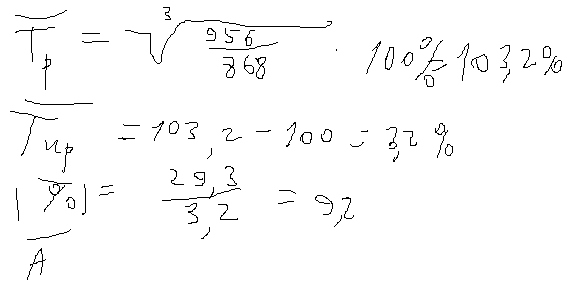 T̅p = ∛(956/868) · 100% = 103,2%
T̅пр = 103,2 - 100 = 3,2%
|%| = 29,3/3,2 = 9,2
A